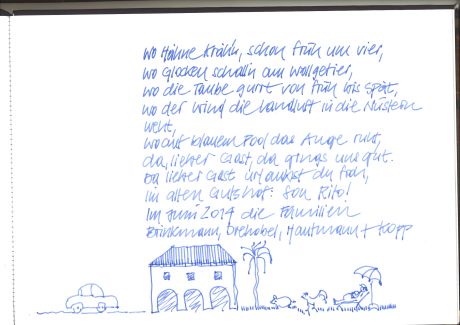 wo Hähne krähn, schon früh um vier,
wo Glocken schalln am Wallgetier,
wo die Taube gurrt von früh bis spät,
wo der Wind die Landluft in die Nüstern
weht,
wo auf blauem Pool das Auge ruht,
da, lieber Gast, da gings uns gut.
Da lieber Gast urlaubst du froh,
im alten Gutshof: Son Rito!
Im Juni 2014 die Familien
Brinkmann, Drehobel, Hautmann + Kopp